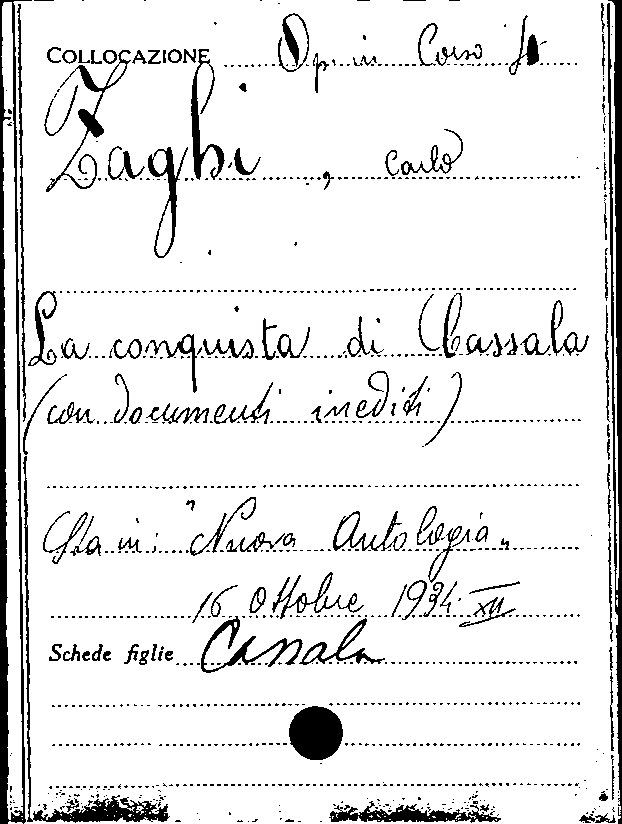 COLLOCAZIONE Op. in Corso
Zaghi, Carlo
La conquista di Cassala
(con documenti inediti)
Sta in: "Nuova Antologia„
16 Ottobre 1934. XII
Schede figlie Cassala